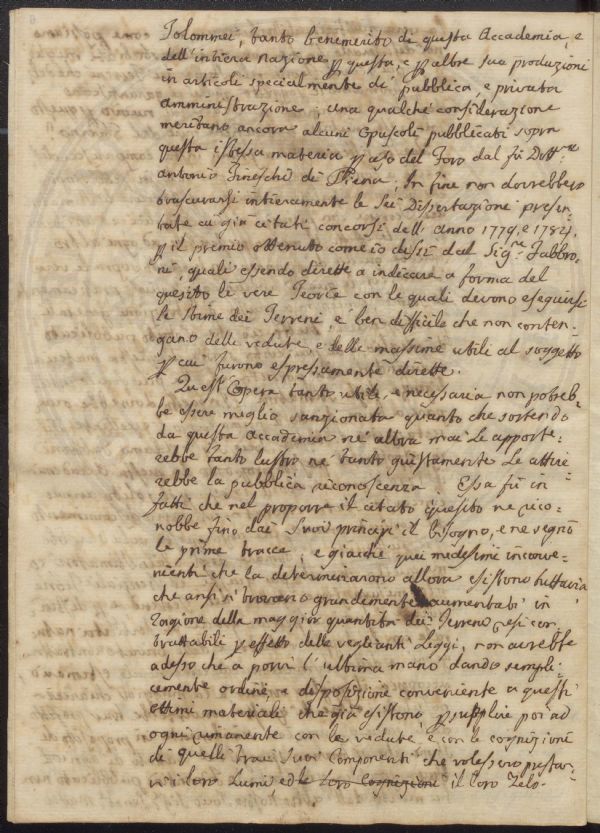 Tolommei, tanto benemerito di questa Accademia, e
dell'intiera Nazione p questa, e p altre sua produzioni
in articoli specialmente di pubblica, e privata
amministrazione; una qualche considerazione
meritano ancora alcuni Opuscoli pubblicati sopra
questa istessa materia p uso del Foro dal fù Dott.re
Antonio Fineschi di Siena; In fine non dovrebbero
trascurarsi intieramente le sei Dissertazioni presen-
tate ai già citati concorsi dell'anno 1779, e 1784,
p il premio ottenuto come io dissi dal Sig.re Fabbro-
ni, quali essendo dirette a indicare a forma del
quesito le vere Teorie con le quali devono eseguirsi
le stime dei Terreni, e ben difficile che non conten-
gano delle vedute, e delle massime utili al soggetto
p cui furono espressamente dirette.
Quest'Opera tanto utile, e necessaria non potreb-
be essere meglio sanzionata quanto che sortendo
da questa Accademia nè altra mai Le apporte-
rebbe tanto lustro nè tanto giustamente Le attire
rebbe la pubblica riconoscenza. Essa fù in
fatti che nel proporre il citato quesito ne rico-
nobbe fino dai suoi principj il bisogno, e ne segnò
le prime tracce; e giacchè quei medesimi inconve-
nienti che la determinarono allora esistono tuttavia
che anzi si trovano grandemente aumentati in
ragione della maggior quantità dei Terreni resi con
trattabili p effetto delle veglianti Leggi, non avrebbe
adesso che a porvi l'ultima mano dando sempli-
cemente ordine, e disposizione conveniente a questi
ottimi materiali che già esistono, p supplire poi ad
ogni rimanente con le vedute, e con le cognizioni
di quelli trai suoi Componenti che volessero prestar-
vi i loro Lumi, ed le loro Cognizioni il loro Zelo.